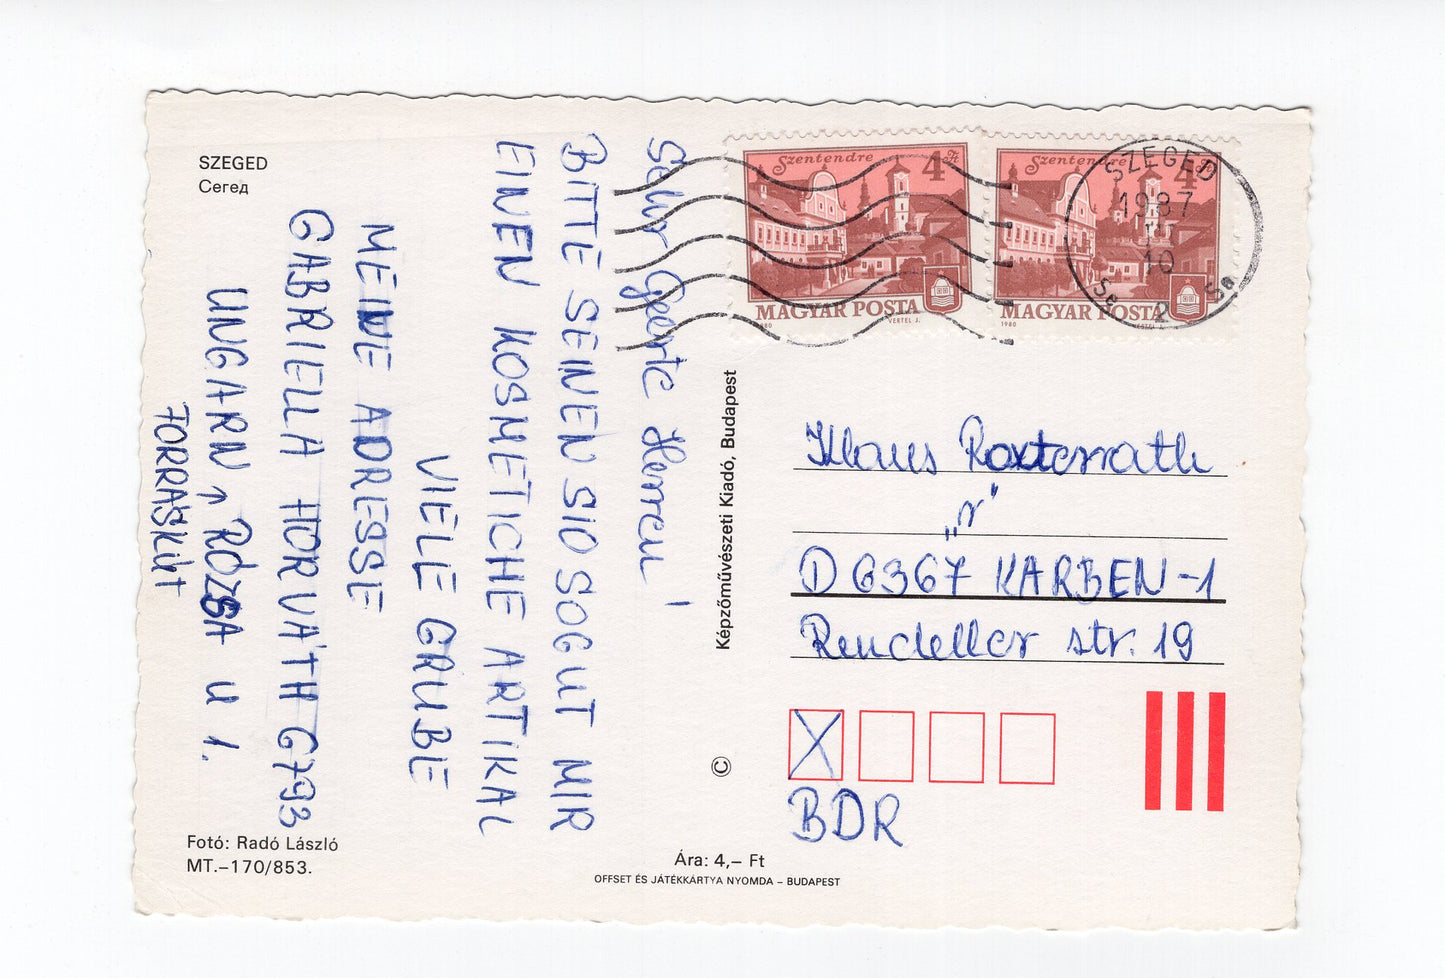 SZEGED
Сегед
Sehr Geerte Herren!
BITTE SEINEN SIO SOGUT MIR
EINEN KOSMETICHE ARTIKAL
VIELE GRUBE
MEINE ADRESSE
GABRIELLA HORVÁTH 6793
UNGARN ↑ RÓZSA U 1.
FORRÁSKÚT
Fotó: Radó László
MT.–170/853.
Képzőművészeti Kiadó, Budapest
©
Ára: 4,– Ft
OFFSET ÉS JÁTÉKKÁRTYA NYOMDA – BUDAPEST
Szentendre 4 Ft
MAGYAR POSTA
1980 VERTEL J.
Szentendre 4 Ft
MAGYAR POSTA
1980 VERTEL J.
SZEGED
1987
10
2
Klaus Roxterrath
„r"
D 6367 KARBEN-1
Rendeller str. 19
X
BDR